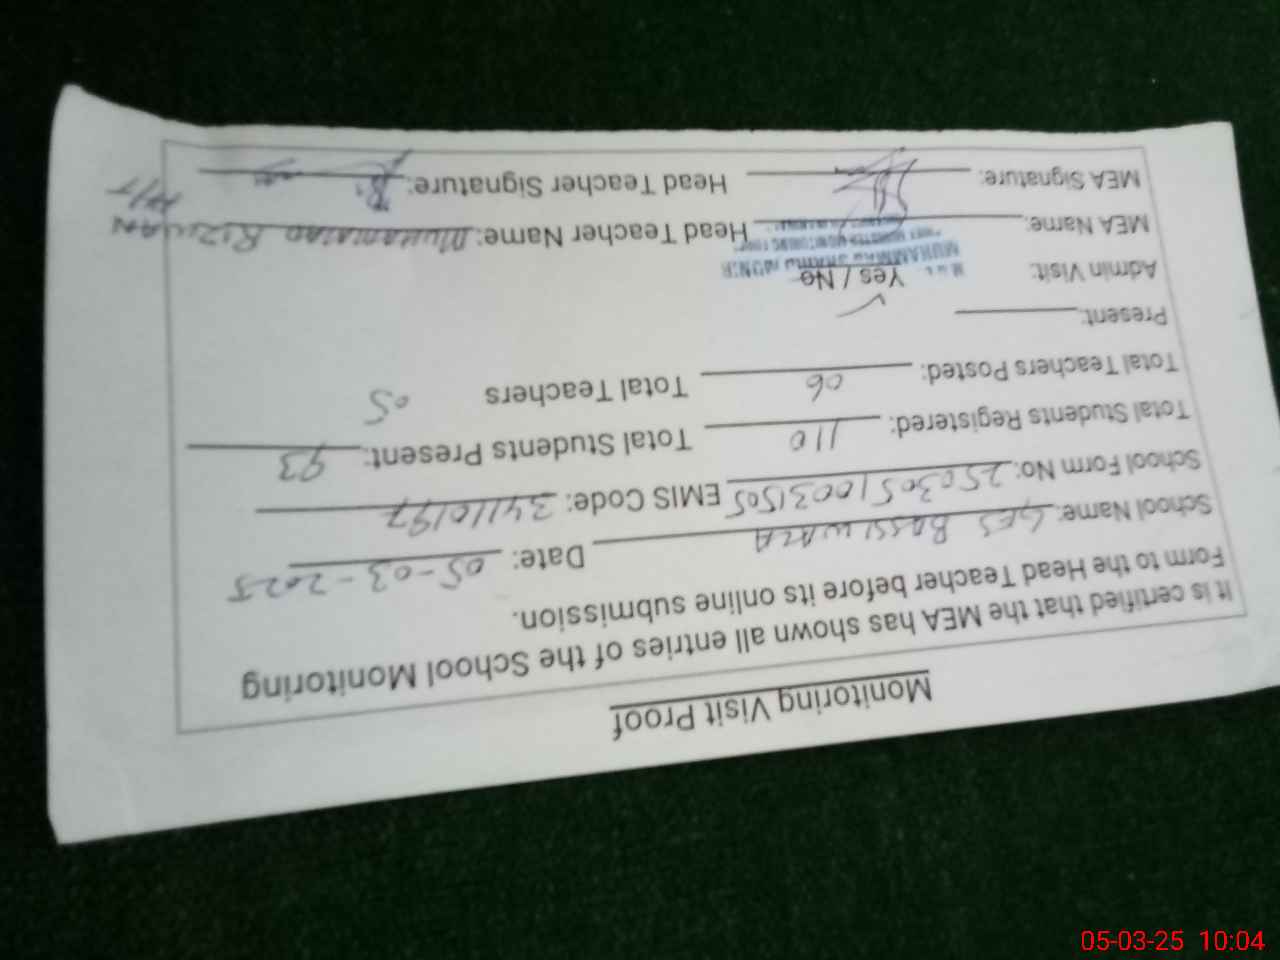 Monitoring Visit Proof
It is certified that the MEA has shown all entries of the School Monitoring
Form to the Head Teacher before its online submission.
School Name: GES BASSI WALA Date: 05-03-2025
School Form No: 25030510031505 EMIS Code: 34110197
Total Students Registered: 110 Total Students Present: 93
Total Teachers Posted: 06 Total Teachers 05
Present:
Admin Visit: Yes / No
MEA Name: Head Teacher Name: MUHAMMAD RIZWAN
MEA Signature: Head Teacher Signature:
05-03-25 10:04